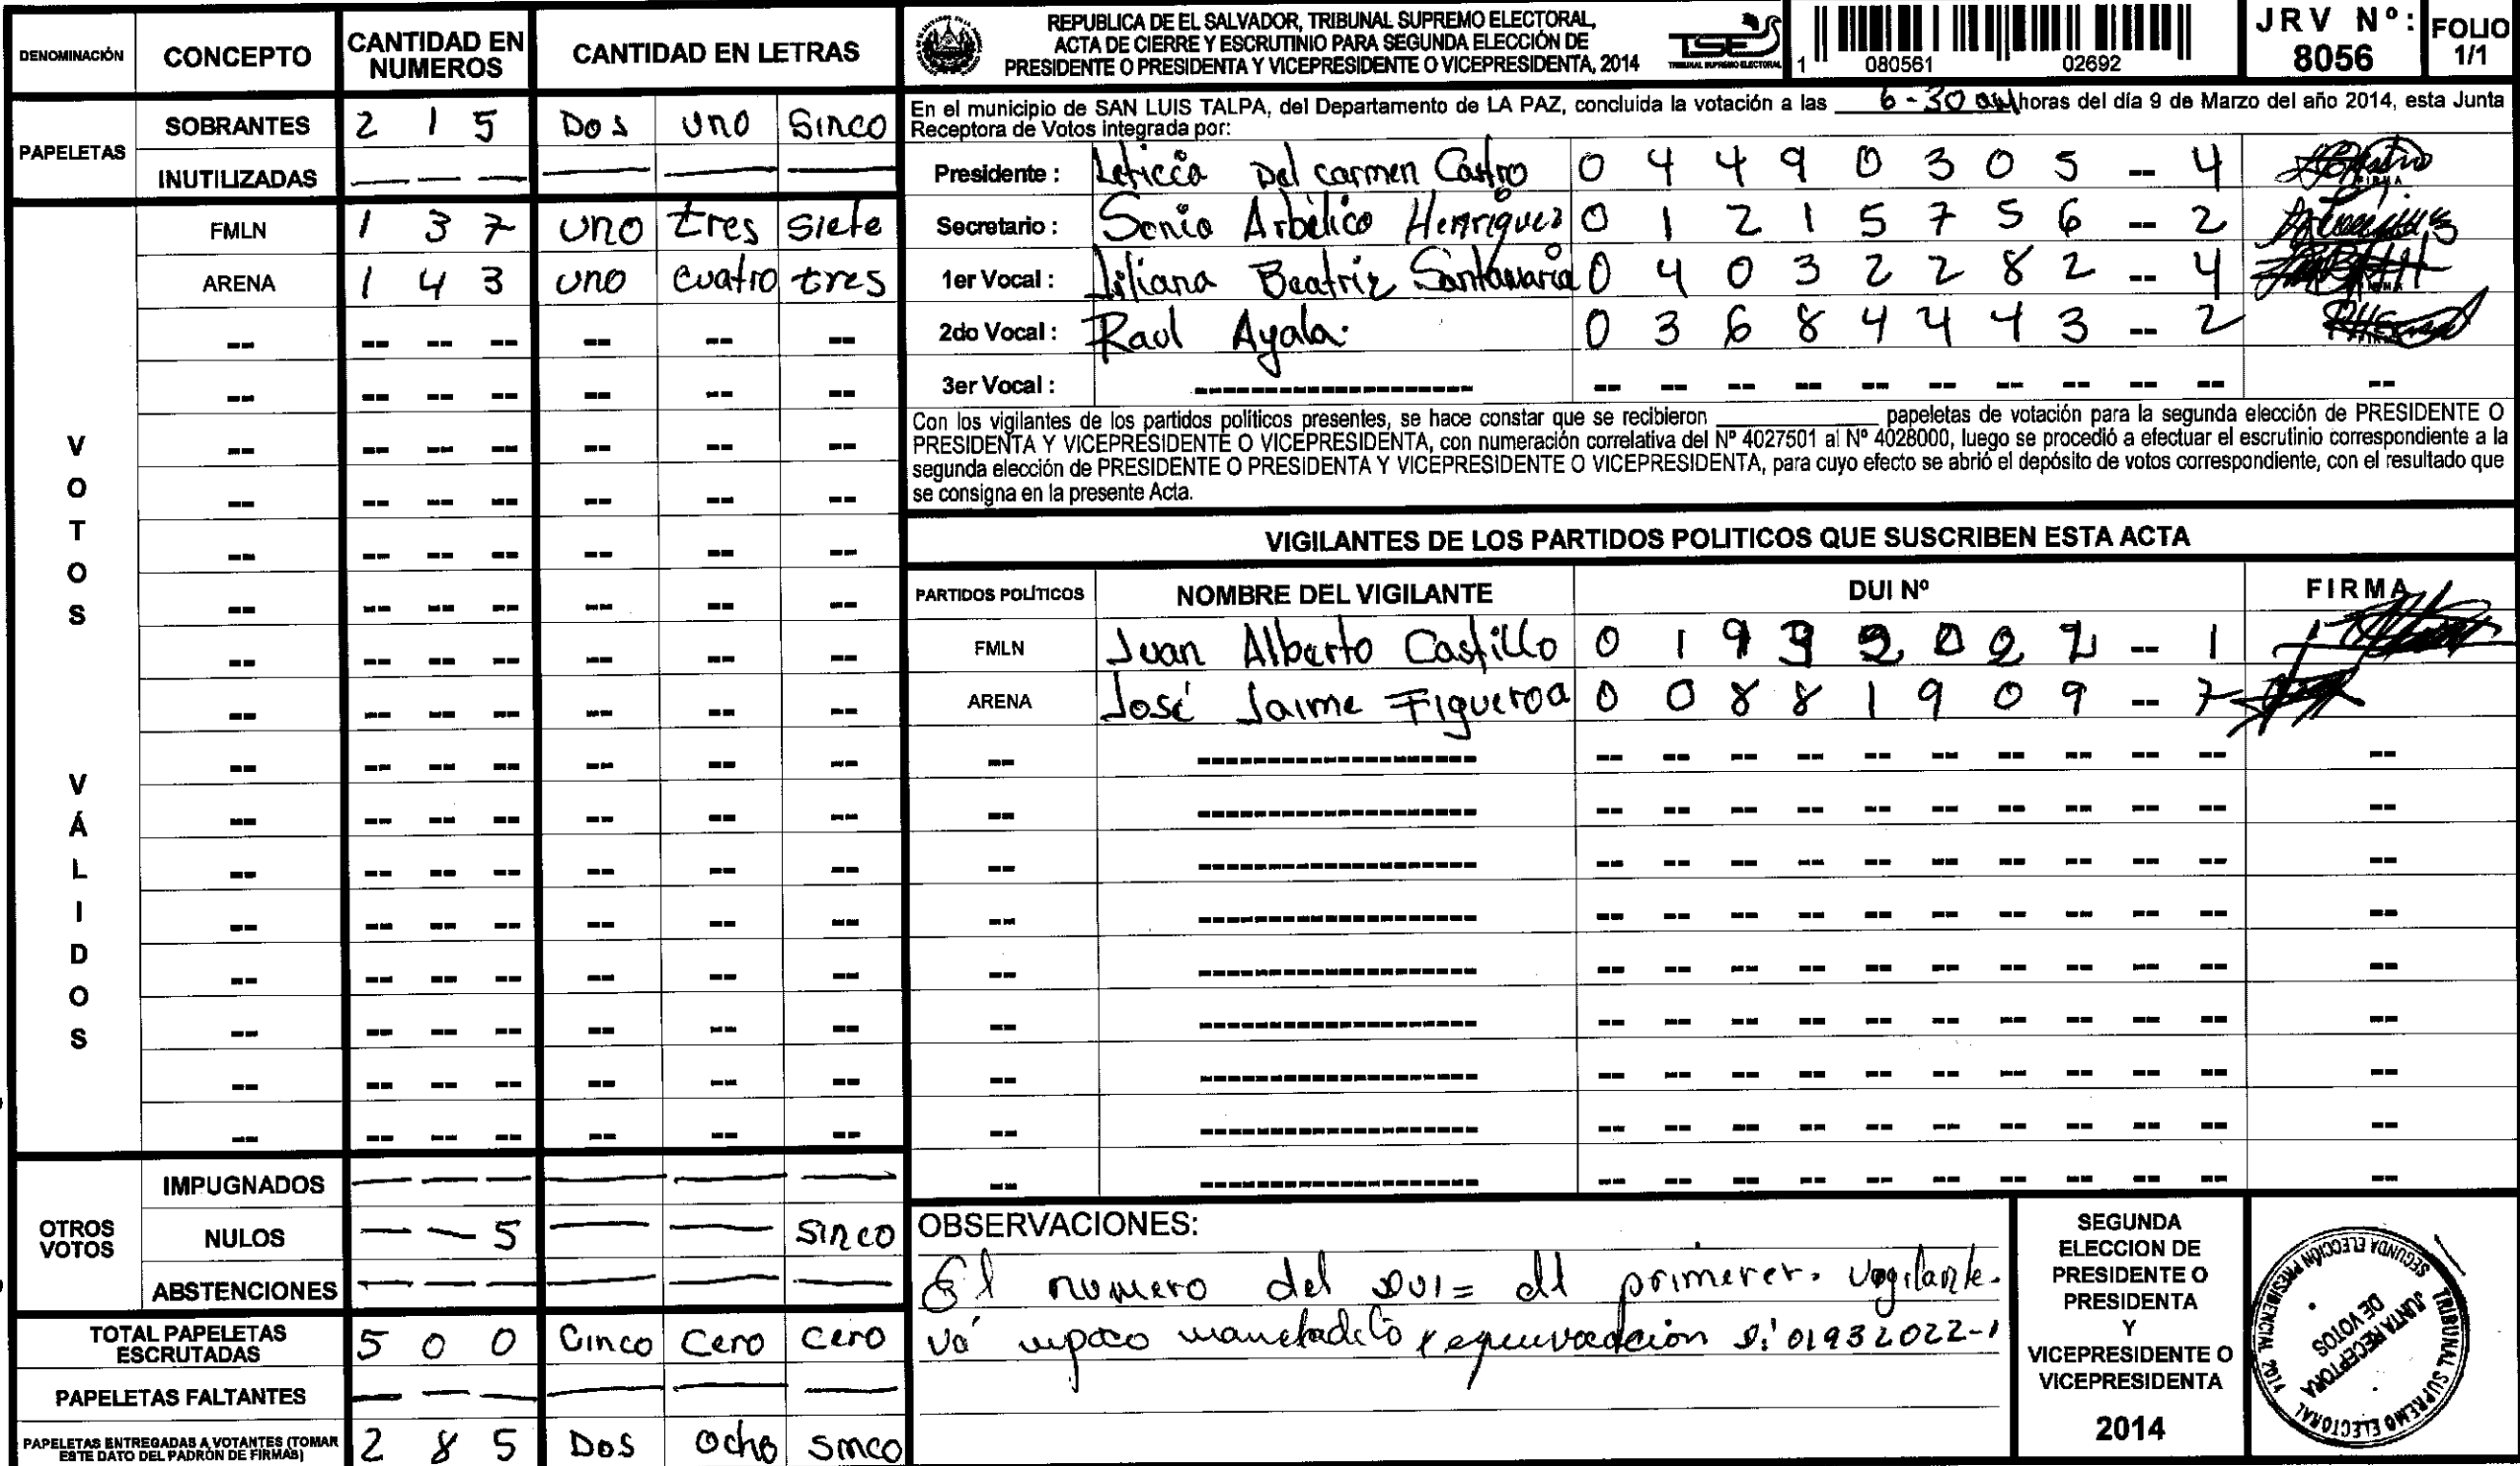 DENOMINACIÓN CONCEPTO CANTIDAD EN NUMEROS CANTIDAD EN LETRAS
PAPELETAS
SOBRANTES 2 1 5 Dos uno Sinco
INUTILIZADAS — — — — — —
VOTOS VÁLIDOS
FMLN 1 3 7 uno tres siete
ARENA 1 4 3 uno cuatro tres
OTROS VOTOS
IMPUGNADOS — — — — — —
NULOS — — 5 — — sinco
ABSTENCIONES — — — — — —
TOTAL PAPELETAS ESCRUTADAS 5 0 0 Cinco Cero cero
PAPELETAS FALTANTES — — — — — —
PAPELETAS ENTREGADAS A VOTANTES (TOMAR ESTE DATO DEL PADRÓN DE FIRMAS) 2 8 5 Dos ocho sinco
REPUBLICA DE EL SALVADOR, TRIBUNAL SUPREMO ELECTORAL,
ACTA DE CIERRE Y ESCRUTINIO PARA SEGUNDA ELECCIÓN DE
PRESIDENTE O PRESIDENTA Y VICEPRESIDENTE O VICEPRESIDENTA, 2014
TSE
TRIBUNAL SUPREMO ELECTORAL
1 080561 02692
JRV Nº: 8056
FOLIO 1/1
En el municipio de SAN LUIS TALPA, del Departamento de LA PAZ, concluida la votación a las 6-30 horas del día 9 de Marzo del año 2014, esta Junta
Receptora de Votos integrada por:
Presidente : Leticia Del carmen Castro 0 4 4 9 0 3 0 5 -- 4
Secretario : Sonia Arbelico Henriquez 0 1 2 1 5 7 5 6 -- 2
1er Vocal : Liliana Beatriz Santamaria 0 4 0 3 2 2 8 2 -- 4
2do Vocal : Raul Ayala. 0 3 6 8 4 4 4 3 -- 2
3er Vocal :
Con los vigilantes de los partidos políticos presentes, se hace constar que se recibieron ________ papeletas de votación para la segunda elección de PRESIDENTE O
PRESIDENTA Y VICEPRESIDENTE O VICEPRESIDENTA, con numeración correlativa del Nº 4027501 al Nº 4028000, luego se procedió a efectuar el escrutinio correspondiente a la
segunda elección de PRESIDENTE O PRESIDENTA Y VICEPRESIDENTE O VICEPRESIDENTA, para cuyo efecto se abrió el depósito de votos correspondiente, con el resultado que
se consigna en la presente Acta.
VIGILANTES DE LOS PARTIDOS POLITICOS QUE SUSCRIBEN ESTA ACTA
PARTIDOS POLÍTICOS NOMBRE DEL VIGILANTE DUI Nº FIRMA
FMLN Juan Alberto Castillo 0 1 9 3 2 0 2 2 -- 1
ARENA José Jaime Figueroa 0 0 8 8 1 9 0 9 -- 7
OBSERVACIONES:
El numero del DUI= primerer. Vogilante.
Vá 01932022-1
SEGUNDA
ELECCION DE
PRESIDENTE O
PRESIDENTA
Y
VICEPRESIDENTE O
VICEPRESIDENTA
2014
TRIBUNAL SUPREMO ELECTORAL
SEGUNDA ELECCIÓN PRESIDENCIAL 2014
JUNTA RECEPTORA
DE VOTOS